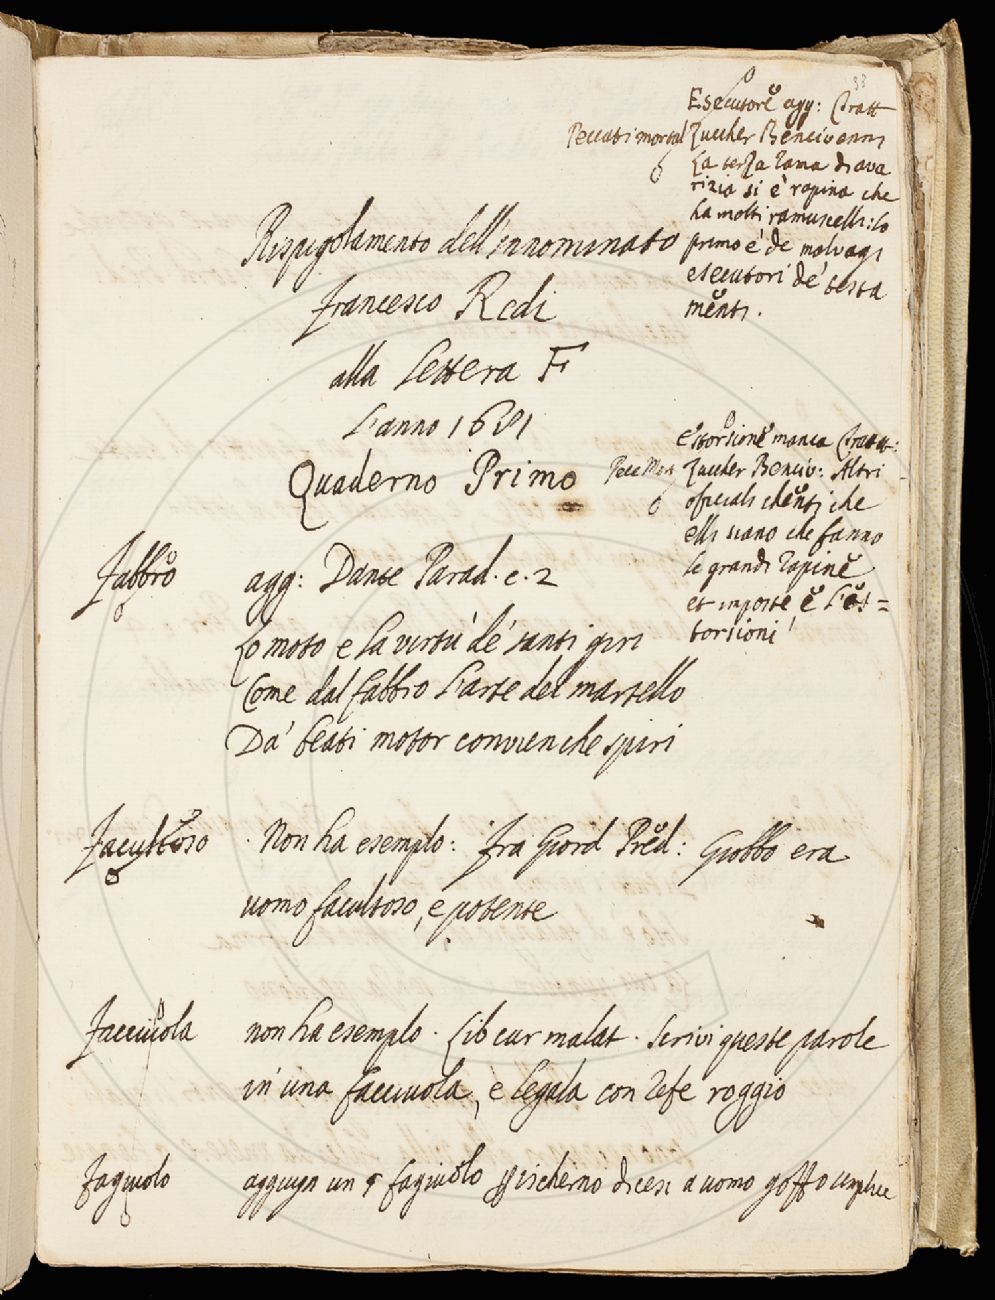 33
Esecutore agg: Tratt
Peccati mortal Zuccher Bencivenni
La terza rama d'ava
rizia si è rapina che
ha molti ramuscelli: lo
primo è de malvagi
esecutori de' testa
menti.
Rispigolamento dell'Innominato
Francesco Redi
alla Lettera F
L'anno 1681
Quaderno Primo
Estorsione manca Tratt:
Pecc Mort Zuccher Benciv: Altri
officiali chenti che
elli siano che fanno
le grandi rapine
et imposte e l'es=
torsioni
Fabbro agg: Dante Parad. c. 2
Lo moto e la virtù de' santi giri
Come dal fabbro l'arte del martello
Da' beati motor convien che spiri
Facultoso Non ha esempio: Fra Giord Pred: Giobbo era
uomo facultoso, e potente
Facciuola non ha esempio. Lib cur malat. Scrivi queste parole
in una facciuola, e legala con refe roggio
Fagiuolo aggiugn un fagiuolo p ischerno dicesi a uomo goffo